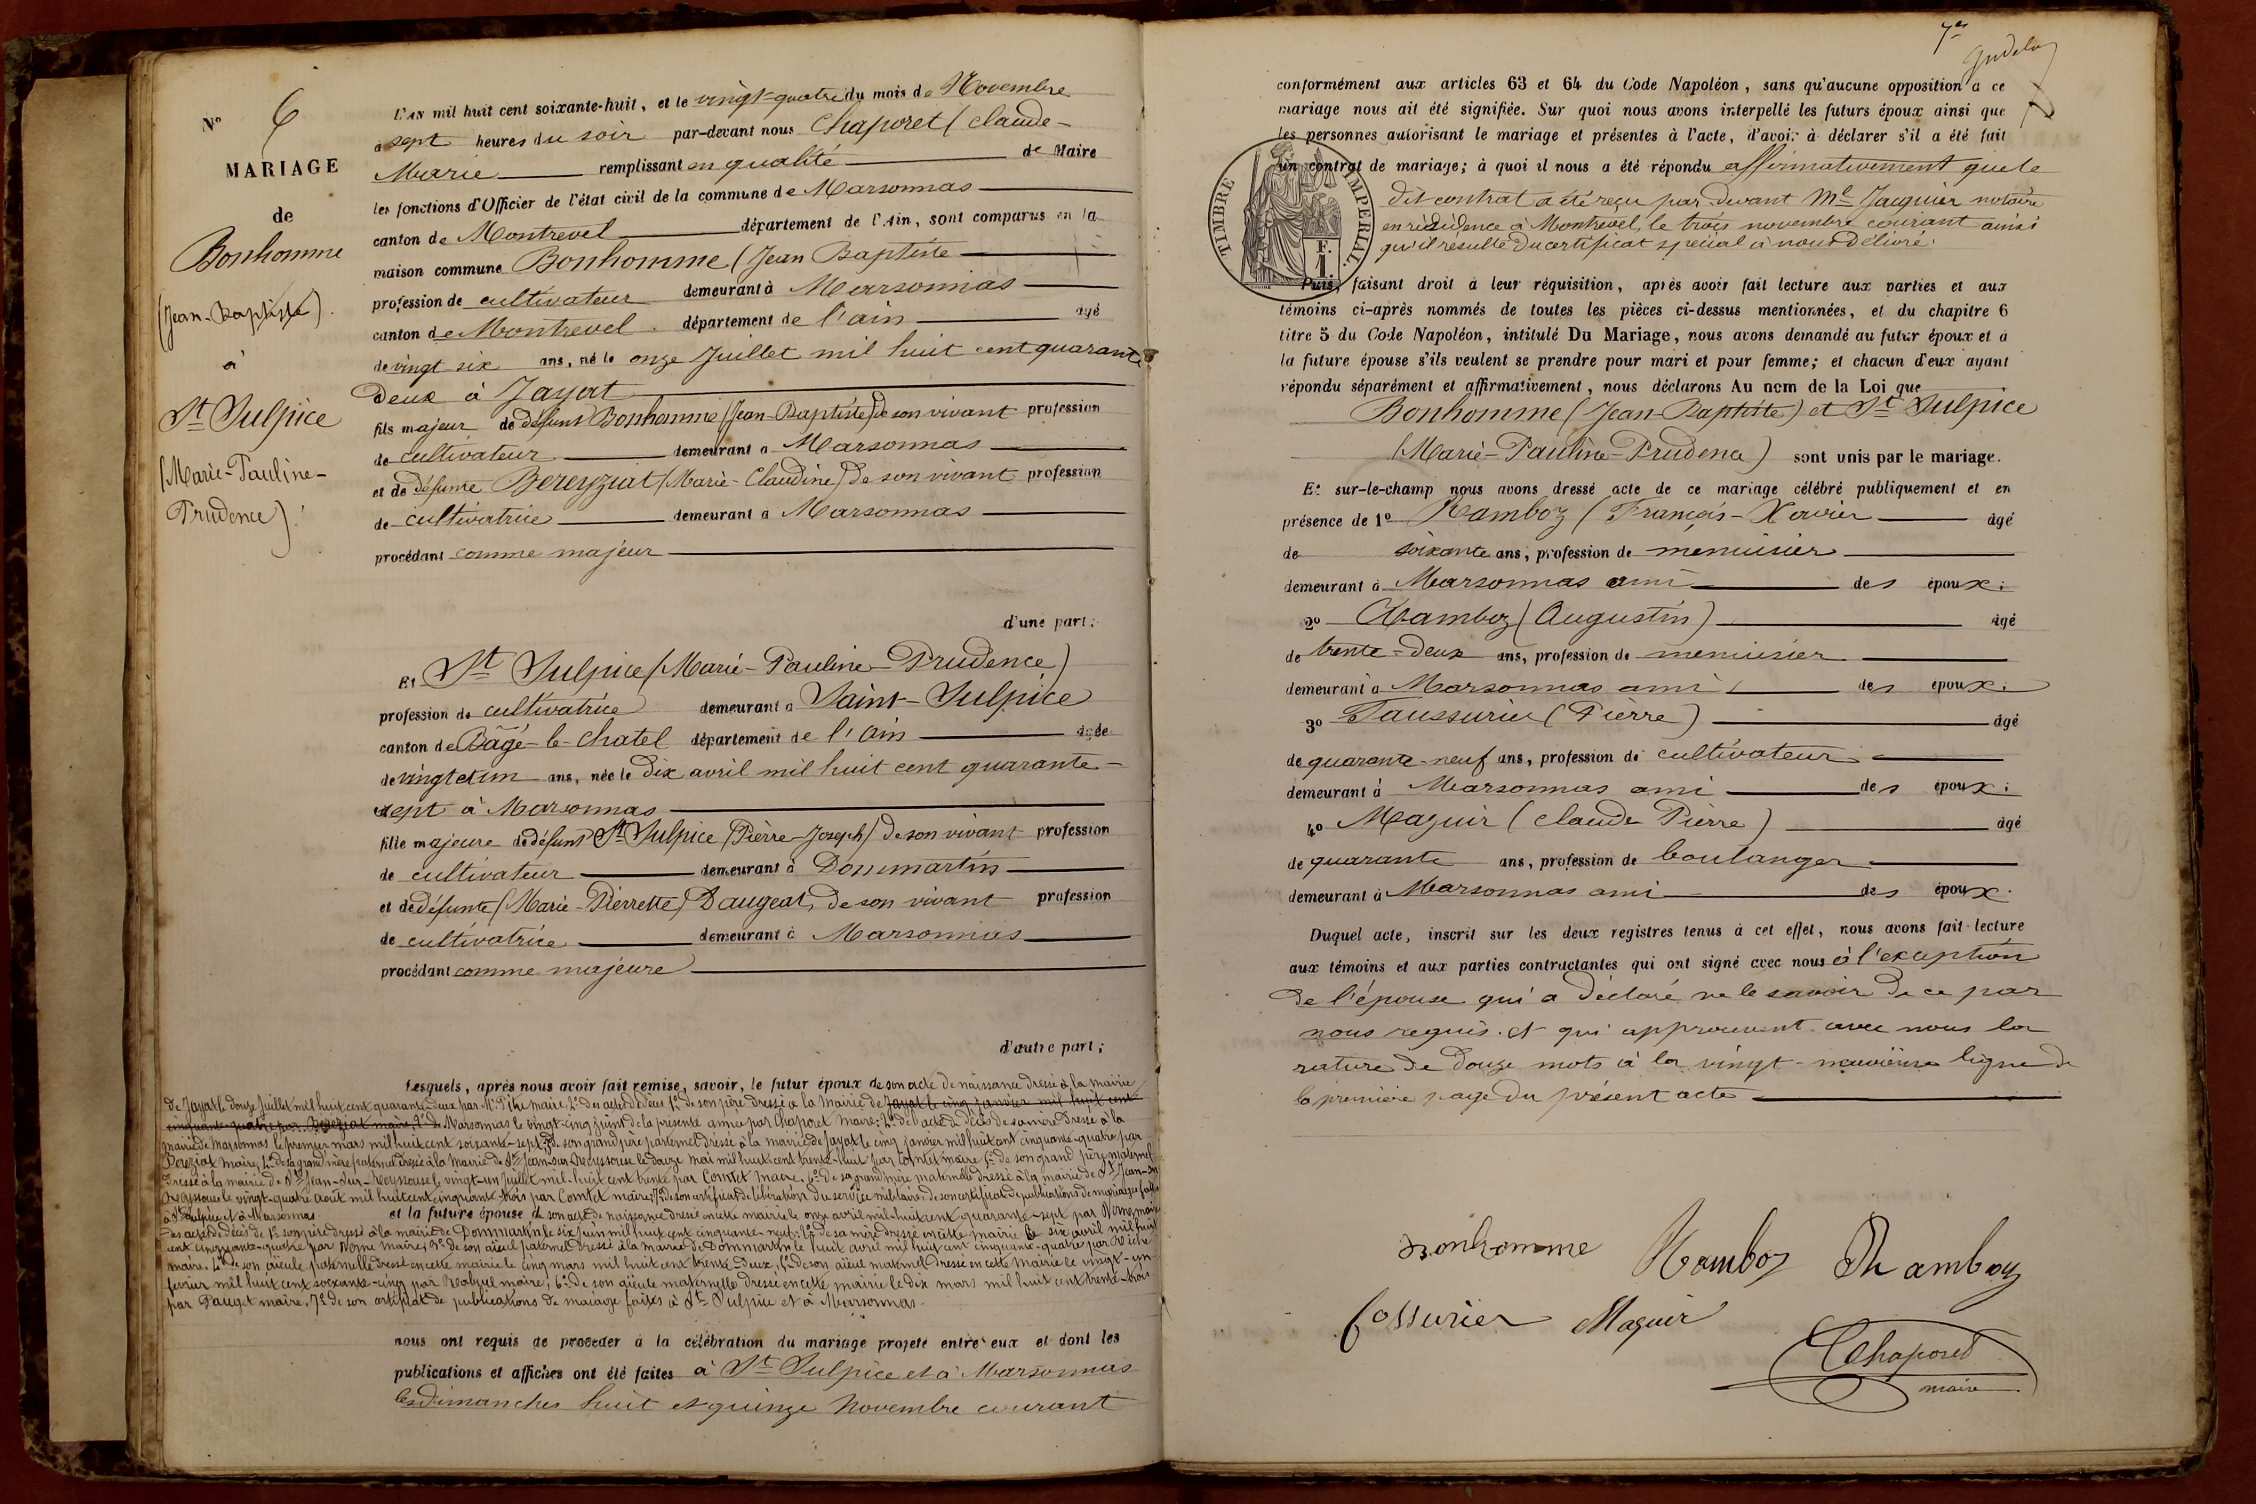 N° 6
MARIAGE
de
Bonhomme
(Jean-Baptiste)
à
St Sulpice
(Marie-Pauline-
Prudence).
L'AN mil huit cent soixante-huit, et le vingt-quatre du mois de Novembre
à sept heures du soir par-devant nous Chaporet (Claude-
Marie remplissant en qualité de Maire
les fonctions d'Officier de l'état civil de la commune de Marsonnas
canton de Montrevel département de l'Ain, sont comparus en la
maison commune Bonhomme (Jean Baptiste
profession de cultivateur demeurant à Marsonnas
canton de Montrevel département de l'ain âgé
de vingt six ans, né le onze Juillet mil huit cent quarante
deux à Jayat
fils majeur de défunt Bonhomme (Jean-Baptiste) de son vivant profession
de cultivateur demeurant à Marsonnas
et de défunte Bereyziat (Marie-Claudine) de son vivant profession
de cultivatrice demeurant à Marsonnas
procédant comme majeur
d'une part;
Et St Sulpice (Marie-Pauline-Prudence)
profession de cultivatrice demeurant à Saint-Sulpice
canton de Bâgé-le-Chatel département de l'ain âgée
de vingt et un ans, née le dix avril mil huit cent quarante-
sept à Marsonnas
fille majeure de défunt St Sulpice (Pierre-Joseph) de son vivant profession
de cultivateur demeurant à Dommartin
et de défunte (Marie-Pierrette) Daugeat, de son vivant profession
de cultivatrice demeurant à Marsonnas
procédant comme majeure
d'autre part;
Lesquels, après nous avoir fait remise, savoir, le futur époux de son acte de naissance dressé à la mairie
de Jayat le douze Juillet mil huit cent quarante-deux par Mr maire 2° des actes de décès 1° de son père dressé à la mairie de Jayat le cinq janvier mil huit cent
cinquante-quatre par Bereziat maire, 2° de Marsonnas le vingt-cinq juin de la présente année par Chaporet maire; 2° de l'acte de décès de sa mère dressé à la
mairie de Marsonnas le premier mars mil huit cent soixante-sept, 3° de son grand père paternel dressé à la mairie de Jayat le cinq janvier mil huit cent cinquante-quatre par
Bereziat maire, 4° de sa grand'mère paternelle dressé à la mairie de St Jean-sur-Reyssouse le douze mai mil huit cent trente-huit par Comtet maire 5° de son grand père maternel
dressé à la mairie de St Jean-sur-Reyssouse le vingt-un juillet mil-huit cent trente par Comtet maire, 6° de sa grand'mère maternelle dressé à la mairie de St Jean-sur
Reyssouse le vingt-quatre août mil huit cent cinquante-trois par Comtet maire; 7° de son certificat de libération du service militaire. de son certificat de publications de mariage faites
à St Sulpice et à Marsonnas. et la future épouse de son acte de naissance dressé en cette mairie le onze avril mil-huit cent quarante-sept par maire
des actes de décès de 1° son père dressé à la mairie de Dommartin le six juin mil huit cent cinquante-neuf; 2° de sa mère dressé en cette mairie le six avril mil huit
cent cinquante-quatre par maire; 3° de son aïeul paternel dressé à la mairie de Dommartin le huit avril mil huit cent cinquante-quatre par
maire. 4° de son aïeule paternelle dressé en cette mairie le cinq mars mil huit cent trente-deux, 5° de son aïeul maternel dressé en cette mairie le vingt-un-
février mil huit cent soixante-cinq par maire, 6° de son aïeule maternelle dressé en cette mairie le dix mars mil huit cent trente-trois
par Pauget maire, 7° de son certificat de publications de mariage faites à St Sulpice et à Marsonnas.
nous ont requis de procéder à la célébration du mariage projeté entre eux et dont les
publications et affiches ont été faites à St Sulpice et à Marsonnas
les dimanches huit et quinze Novembre courant
conformément aux articles 63 et 64 du Code Napoléon, sans qu'aucune opposition à ce
mariage nous ait été signifiée. Sur quoi nous avons interpellé les futurs époux ainsi que
les personnes autorisant le mariage et présentes à l'acte, d'avoir à déclarer s'il a été fait
un contrat de mariage; à quoi il nous a été répondu affirmativement que le
dit contrat a été reçu par devant Me Jacquier notaire
en résidence à Montrevel, le trois novembre courant ainsi
qu'il résulte du certificat spécial à nous délivré.
TIMBRE IMPÉRIAL
1 F.
Puis, faisant droit à leur réquisition, après avoir fait lecture aux parties et aux
témoins ci-après nommés de toutes les pièces ci-dessus mentionnées, et du chapitre 6
titre 5 du Code Napoléon, intitulé Du Mariage, nous avons demandé au futur époux et à
la future épouse s'ils veulent se prendre pour mari et pour femme; et chacun d'eux ayant
répondu séparément et affirmativement, nous déclarons Au nom de la Loi que
Bonhomme (Jean-Baptiste) et St Sulpice
(Marie-Pauline-Prudence) sont unis par le mariage.
Et sur-le-champ nous avons dressé acte de ce mariage célébré publiquement et en
présence de 1° Ramboz (François-Xavier âgé
de soixante ans, profession de menuisier
demeurant à Marsonnas ami des époux;
2° Ramboz (Augustin) âgé
de trente-deux ans, profession de menuisier
demeurant à Marsonnas ami des époux;
3° Faussurier (Pierre) âgé
de quarante-neuf ans, profession de cultivateur
demeurant à Marsonnas ami des époux;
4° Maguir (Claude Pierre) âgé
de quarante ans, profession de boulanger
demeurant à Marsonnas ami des époux.
Duquel acte, inscrit sur les deux registres tenus à cet effet, nous avons fait lecture
aux témoins et aux parties contractantes qui ont signé avec nous à l'exception
de l'épouse qui a déclaré ne le savoir de ce par
nous requis. et qui approuvent avec nous la
rature de douze mots à la vingt-neuvième ligne de
la première page du présent acte
Bonhomme Ramboz Ramboz
fossurier Maguir
Chaporet
maire